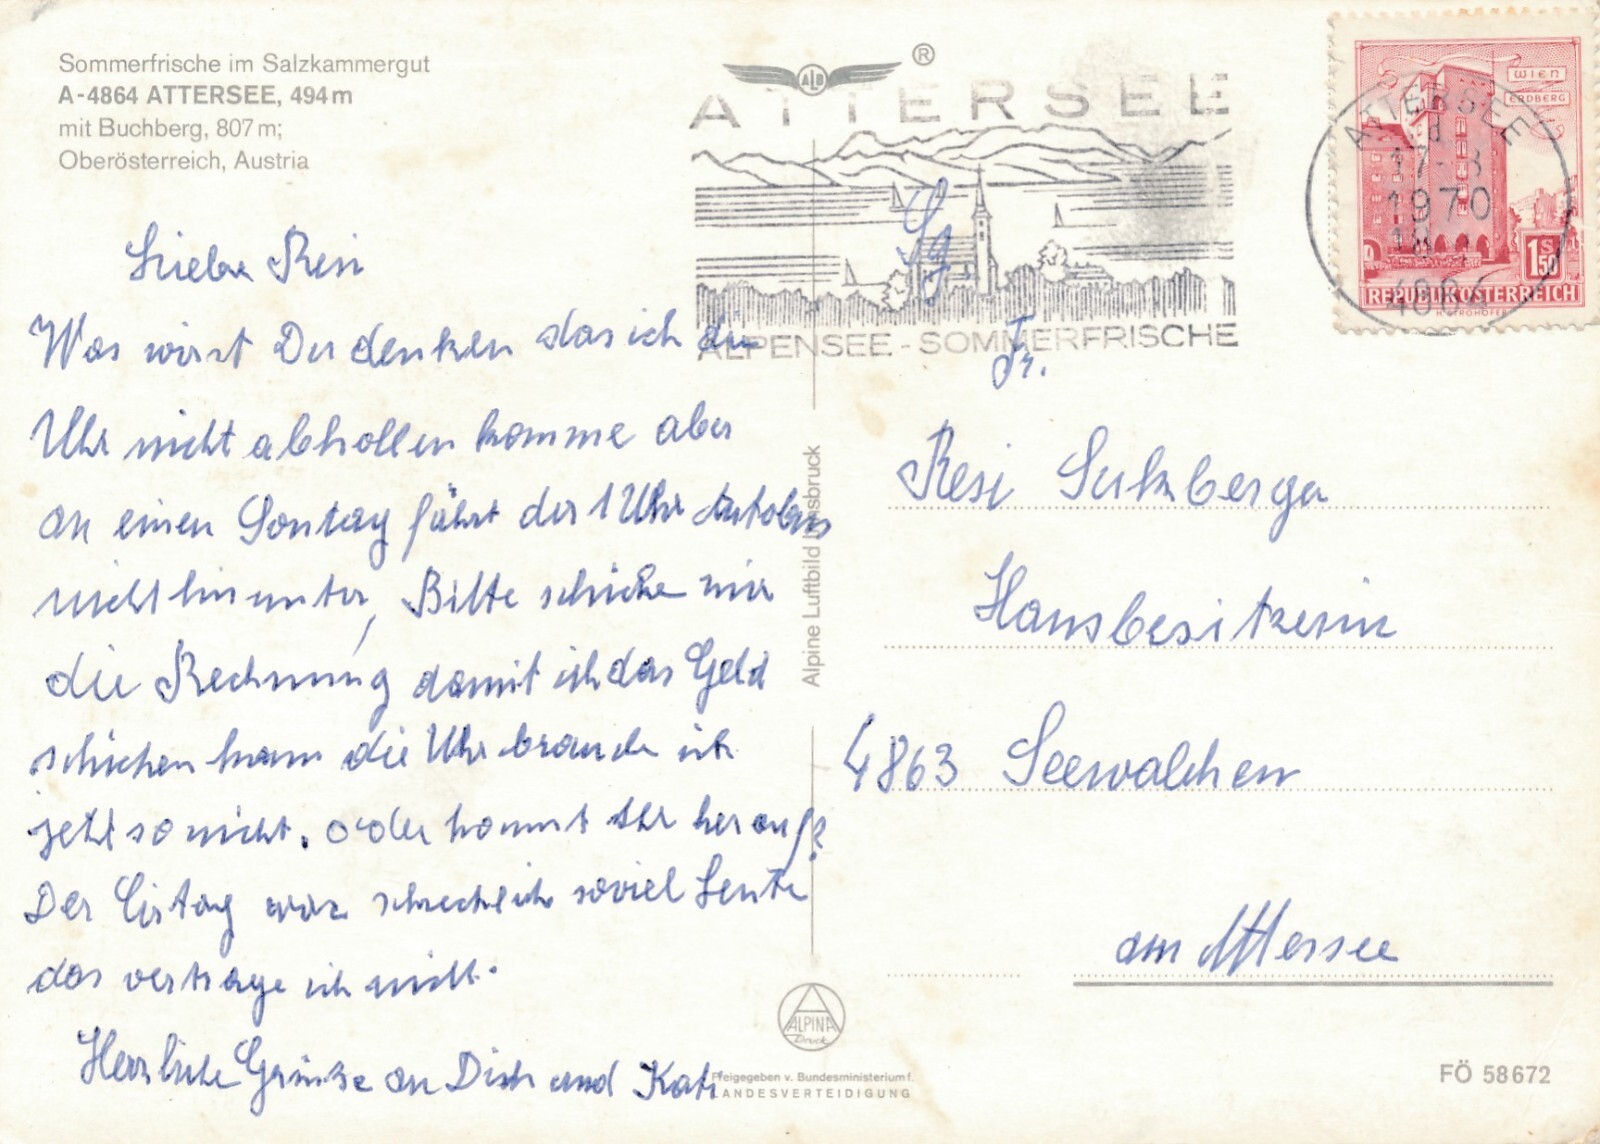 Sommerfrische im Salzkammergut
A-4864 ATTERSEE, 494 m
mit Buchberg, 807 m;
Oberösterreich, Austria
ALB
®
ATTERSEE
ALPENSEE - SOMMERFRISCHE
WIEN
ERDBERG
1 S 50
REPUBLIK ÖSTERREICH
ATTERSEE
1970
Liebe Resi
Was wirst Du denken das ich die
Uhr nicht abhollen komme aber
an einen Sontag fährt der 1 Uhr Autobus
nicht hinunter, Bitte schicke mir
die Rechnung damit ich das Geld
schicken kann die Uhr brauche ich
jetzt so nicht. oder kommt Ihr herauf?
Der Eirtag war schrecklich soviel Leute
das vertrage ich nicht.
Herzliche Grüsse an Dich und Kati
Fr.
Resi Sulzberger
Hausbesitzerin
4863 Seewalchen
am Attersee
Alpine Luftbild Innsbruck
ALPINA
Druck
Freigegeben v. Bundesministerium f.
LANDESVERTEIDIGUNG
FÖ 58672